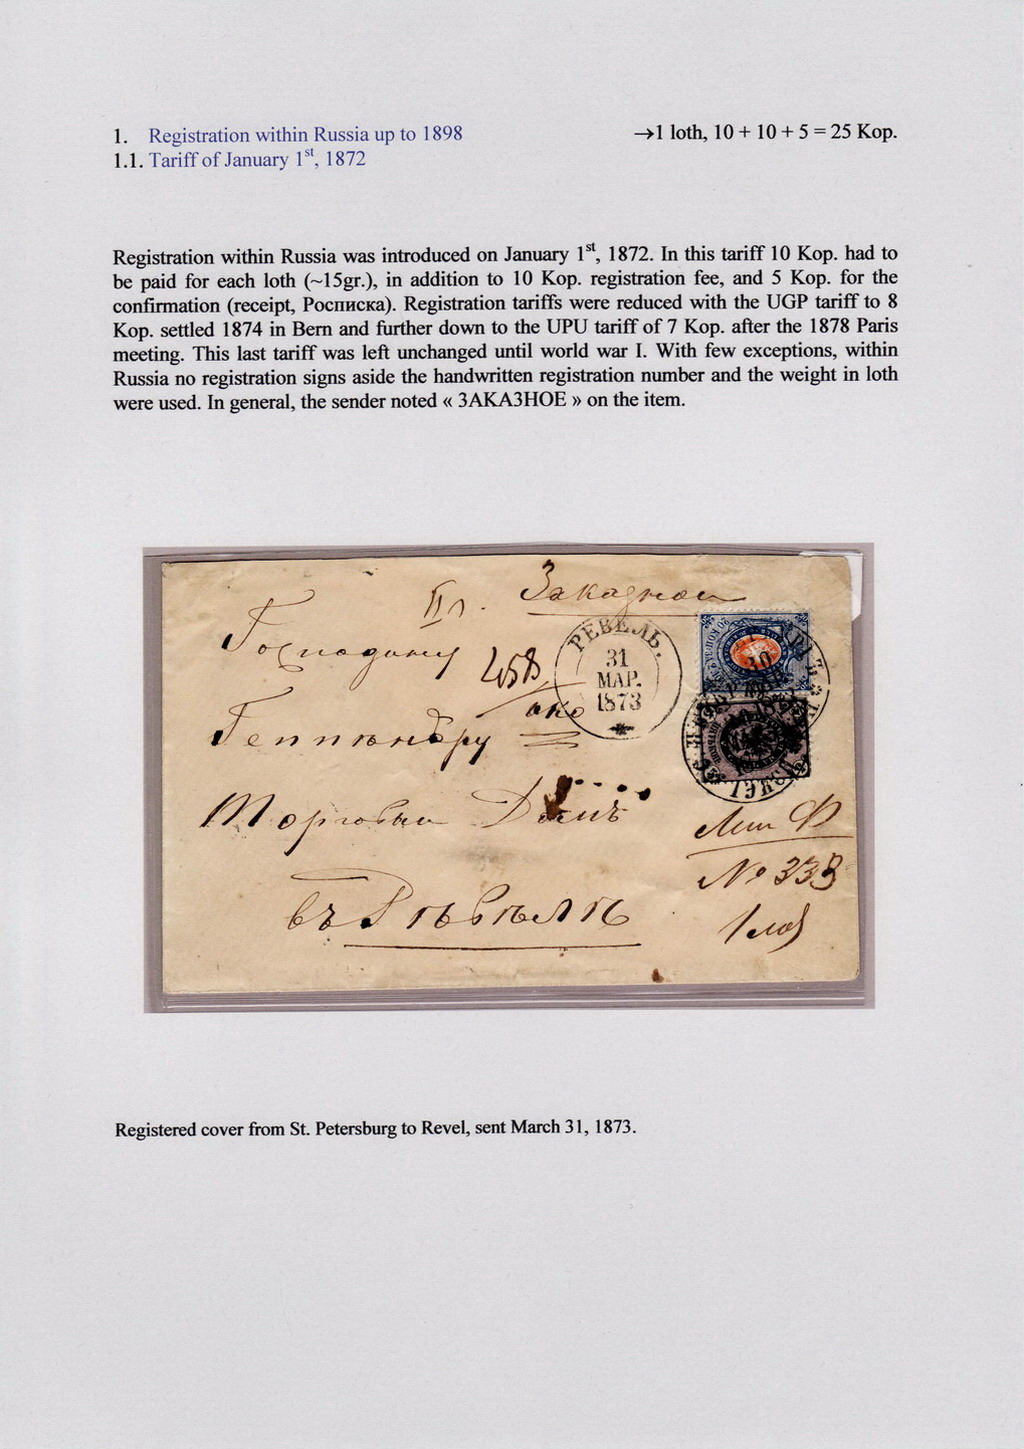 1. Registration within Russia up to 1898
→1 loth, 10 + 10 + 5 = 25 Kop.
1.1. Tariff of January 1st, 1872
Registration within Russia was introduced on January 1st, 1872. In this tariff 10 Kop. had to
be paid for each loth (~15gr.), in addition to 10 Kop. registration fee, and 5 Kop. for the
confirmation (receipt, Росписка). Registration tariffs were reduced with the UGP tariff to 8
Kop. settled 1874 in Bern and further down to the UPU tariff of 7 Kop. after the 1878 Paris
meeting. This last tariff was left unchanged until world war I. With few exceptions, within
Russia no registration signs aside the handwritten registration number and the weight in loth
were used. In general, the sender noted « ЗАКАЗНОЕ » on the item.
Господину
РЕВЕЛЬ.
31
МАР.
1873
Торговый Домъ
№ 333
1 лот
Registered cover from St. Petersburg to Revel, sent March 31, 1873.